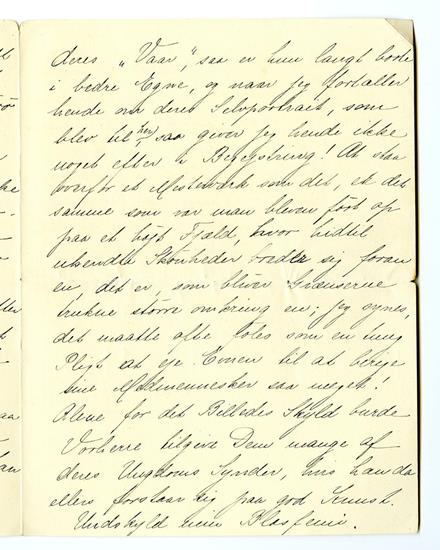 deres „Vaar“, saa er hun langt borte
i bedre Egne, og naar jeg fortæller
hende om deres Selvportrait, som
blev til her, saa giver jeg hende ikke
noget efter i Begejstring! At staa
overfor et Mesterværk som det, er det
samme som var man bleven ført op
paa et højt Fjæld, hvor hidtil
ukendte Skønheder bredte sig foran
en, det er, som bliver Grænserne
trukne større omkring en; jeg synes,
det maatte ofte føles som en tung
Pligt at eje Evnen til at berige
sine Medmennesker saa meget!
Alene for det Billedes Skyld burde
Vorherre tilgive Dem mange af
deres Ungdoms Synder, hvis han da
ellers forstaar sig paa god Kunst.
Undskyld min Blasfemi.